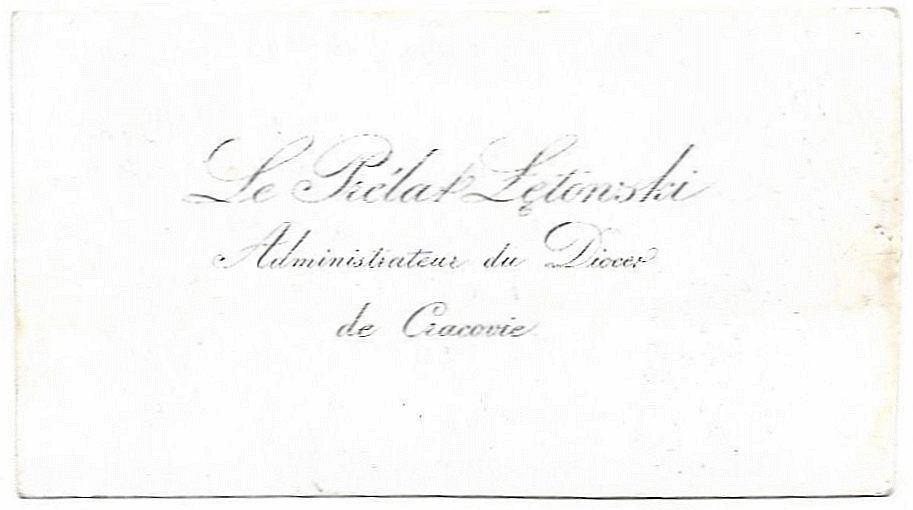 Le Prélat Łętowski
Administrateur du Dioces
de Cracovie